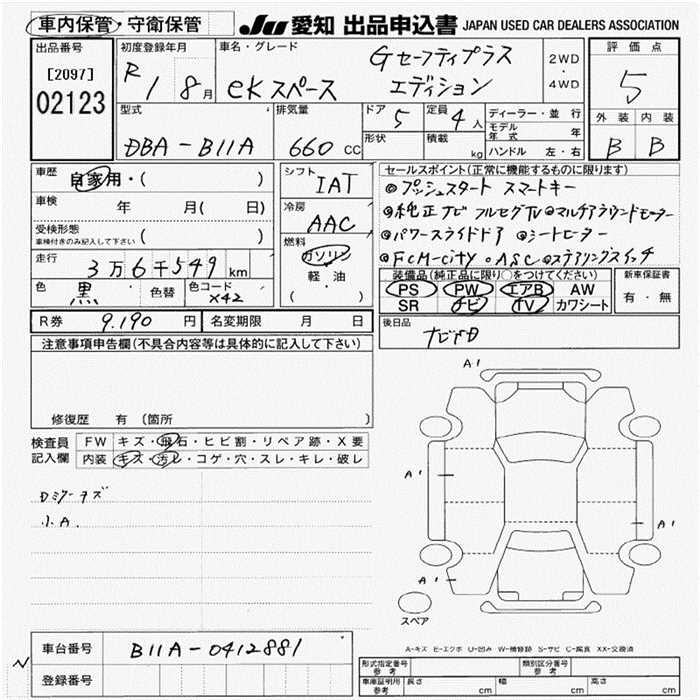 車内保管・守衛保管
JU 愛知 出品申込書 JAPAN USED CAR DEALERS ASSOCIATION
出品番号
[2097]
02123
初度登録年月
R1 8月
車名・グレード
eKスペース
Gセーフティプラス
エディション
2WD
・
4WD
評価点
5
外装 内装
B B
型式
DBA-B11A
排気量
660 CC
ドア
5
定員
4人
形状
積載
kg
ディーラー・並行
モデル年式 年
ハンドル 左・右
車歴
自家用・( )
車検
年 月( 日)
受検形態
車検付きのみ記入して下さい ( )
走行
3万6千549km
色
黒
色替
色コード
X42
シフト
IAT
冷房
AAC
燃料
ガソリン
軽・油
( )
セールスポイント(正常に機能するものに限ります)
◎プッシュスタート スマートキー
◎純正ナビ フルセグTV◎マルチアラウンドモニター
◎パワースライドドア ◎シートヒーター
◎FCM-CITY ◎ASC ◎ステアリングスイッチ
装備品(純正品に限り○をつけてください)
PS PW エアB AW
SR ナビ TV カワシート
新車保証書
有・無
R券 9.190円
名変期限 月 日
後日品
注意事項申告欄(不具合内容等は具体的に記入して下さい)
修復歴 有 (箇所 )
検査員
記入欄
FW キズ・飛石・ヒビ割・リペア跡・X要
内装 キズ・汚レ・コゲ・穴・スレ・キレ・破レ
小A.
A1
A1
A1
A1
スペア
A-キズ E-エクボ U-凹み W-補修跡 S-サビ C-腐食 XX-交換済
車台番号
B11A-0412881
登録番号
形式指定番号
参考
類別区分番号
参考
車庫証明用
参考
長さ cm
幅 cm
高さ cm